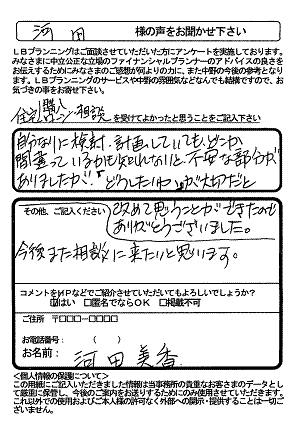 河田 様の声をお聞かせ下さい
LBプランニングはご面談させていただいた方にアンケートを実施しております。
みなさまに中立公正な立場のファイナンシャルプランナーのアドバイスの良さを
お伝えするためにみなさまのご感想が何よりの力に、また中野の今後の参考となり
ます。LBプランニングのサービスや中野の雰囲気などなんでも結構ですので、お
気づきの事をお寄せ下さい。
住宅購入
ローン相談 を受けてよかったと思うことをご記入下さい
自分なりに検討、計画していても、どこか
間違っているかも知れないと、不安な部分が
ありましたが、"どうしたいか"が大切だと
その他、ご記入ください
改めて思うことができたので
ありがとうございました。
今後また相談に来たいと思います。
コメントをHPなどでご紹介させていただいてもよろしいでしょうか？
はい □匿名でならOK □掲載不可
ご住所 〒□□□－□□□□
お電話番号： （ ）
お名前： 河田美香
＜個人情報の保護について＞
この用紙にご記入いただきました情報は当事務所の貴重なお客さまのデータとし
て厳重に保管し、今後のご案内をお送りするためにのみ使用させていただきます。
これ以外での使用およびご本人様の許可なく外部への開示・提供することは一切ご
ざいません。